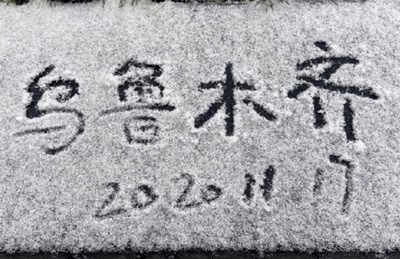 乌鲁木齐
2020 11 17